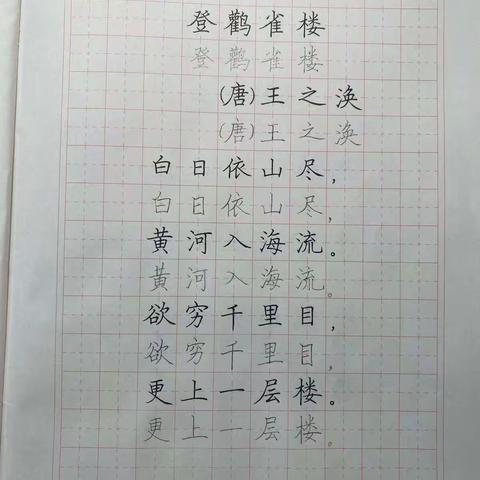 登鹳雀楼
登鹳雀楼
(唐)王之涣
(唐)王之涣
白日依山尽，
白日依山尽，
黄河入海流。
黄河入海流。
欲穷千里目，
欲穷千里目，
更上一层楼。
更上一层楼。